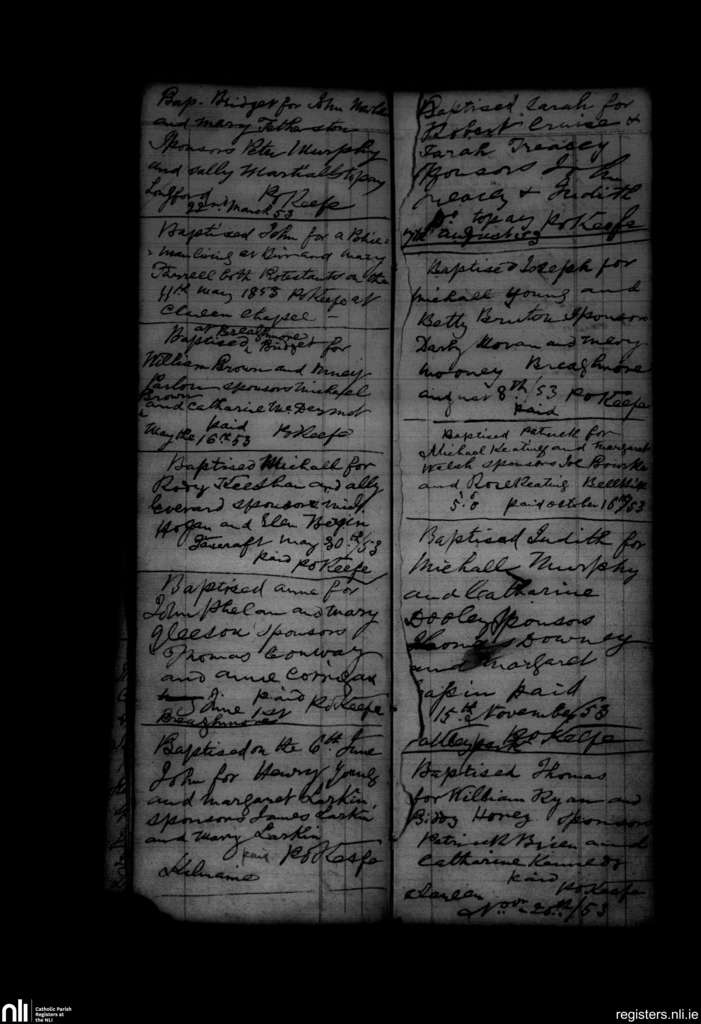 Bap. Bridget for John
and Mary Fetherston
Sponsors Peter Murphy
and Sally Martial to pay
Longford P O Keefe
22nd March 53
Baptised John for a Police
man living at Birr and Mary
both Protestants on the
11th May 1853 P O Keefe at
Clareen Chapel
at Breaghmore
Baptised Bridget for
William Brown and
sponsors Michael
Brown
and Catharine McDermot
paid
May the 16th 53 P O Keefe
Baptised Michall for
Rody Keeshan and ally
Everard sponsors
Hogan and Elen Bergin
May 30th /53
paid P O Keefe
Baptised anne for
John Phelan and Mary
Gleeson sponsors
Thomas Conway
and anne Corrigan
paid
June 1st P O Keefe
Breaghmore
Baptised on the 6th June
John for Henry Young
and Margaret Larkin,
sponsors James Larkin
and Mary Larkin
paid P O Keefe
Baptised Sarah for
Robert Cruise &
Sarah Treacey
Sponsors John
Treacey & Judith
Do to pay P O Keefe
7th august 53
Baptised Joseph for
Michall Young and
Betty Bruton Sponsors
Darby Moran and Mary
Mooney Breaghmore
august 8th /53 P O Keefe
paid
Baptised Patrick for
Michael Keating and Margaret
Welsh sponsors Joe
and Rose Keating
5.0 paid october 16th /53
Baptised Judith for
Michall Murphy
and Catharine
Dooley Sponsors
Thomas Downey
and Margaret
paid
15th November 53
P O Keefe
Baptised Thomas
for William Ryan and
Biddy Sponsors
Patrick Brien and
Catharine Kennedy
paid
P O Keefe
Clareen
Novr 20th /53
nli
Catholic Parish
Registers at
the NLI
registers.nli.ie